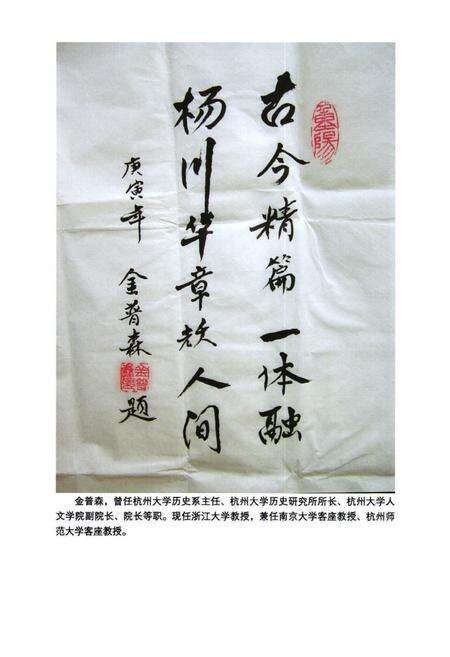 古今精篇一体融
杨川华章颂人间
庚寅年 金普森 题
金普森，曾任杭州大学历史系主任、杭州大学历史研究所所长、杭州大学人
文学院副院长、院长等职。现任浙江大学教授，兼任南京大学客座教授、杭州师
范大学客座教授。